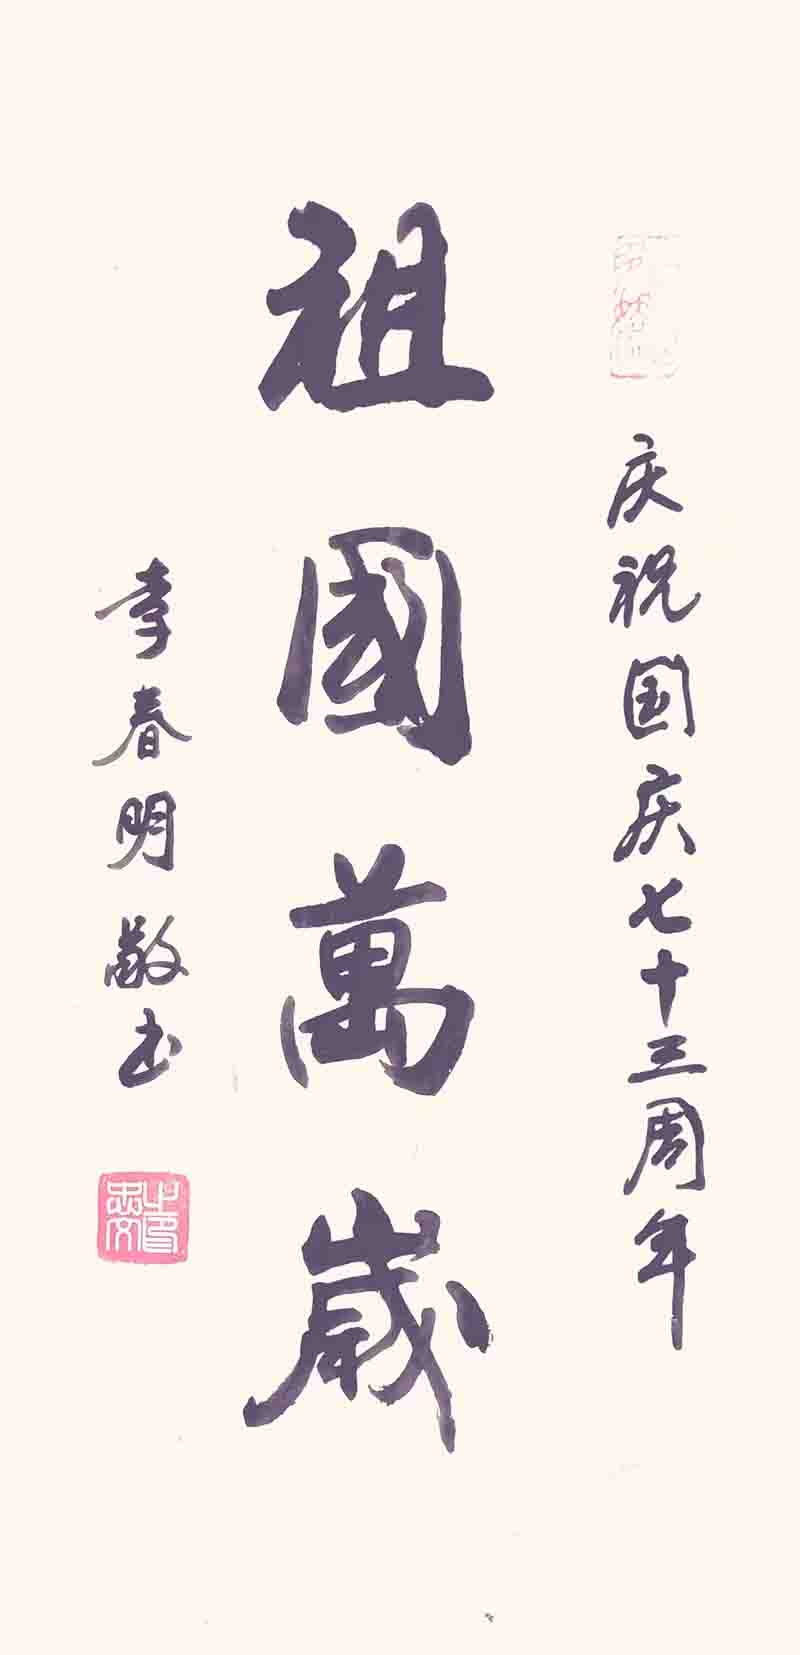 庆祝国庆七十三周年
祖國萬歲
李春明敬书